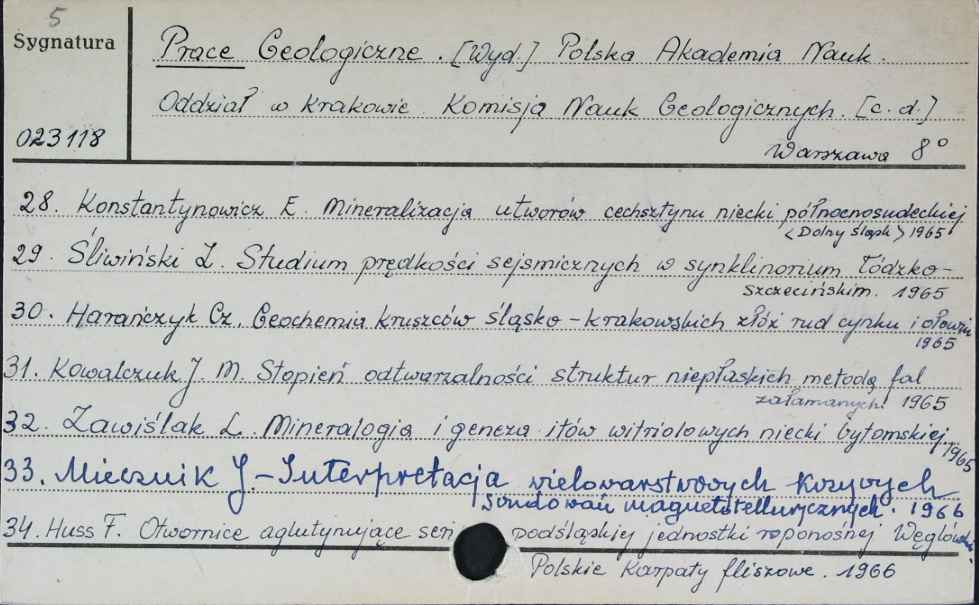 5
Sygnatura
Prace Geologiczne. [Wyd.] Polska Akademia Nauk.
Oddział w Krakowie. Komisja Nauk Geologicznych. [c.d.]
023118
Warszawa 8°
28. Konstantynowicz E. Mineralizacja utworów cechsztynu niecki północnosudeckiej
<Dolny Śląsk> 1965
29. Śliwiński Z. Studium prędkości sejsmicznych w synklinorium Łódzko-
szczecińskim. 1965
30. Harańczyk Cz. Geochemia kruszców śląsko-krakowskich złóż rud cynku i ołowiu
1965
31. Kowalczuk J. M. Stopień odtwarzalności struktur niepłaskich metodą fal
załamanych. 1965
32. Zawiślak L. Mineralogia i geneza iłów witriolowych niecki bytomskiej. 1965
33. Miecznik J. - Interpretacja wielowarstwowych krzywych
sondowań magnetotellurycznych. 1966
34. Huss F. Otwornice aglutynujące ser podśląskiej jednostki roponośnej Węglówki.
Polskie Karpaty fliszowe. 1966